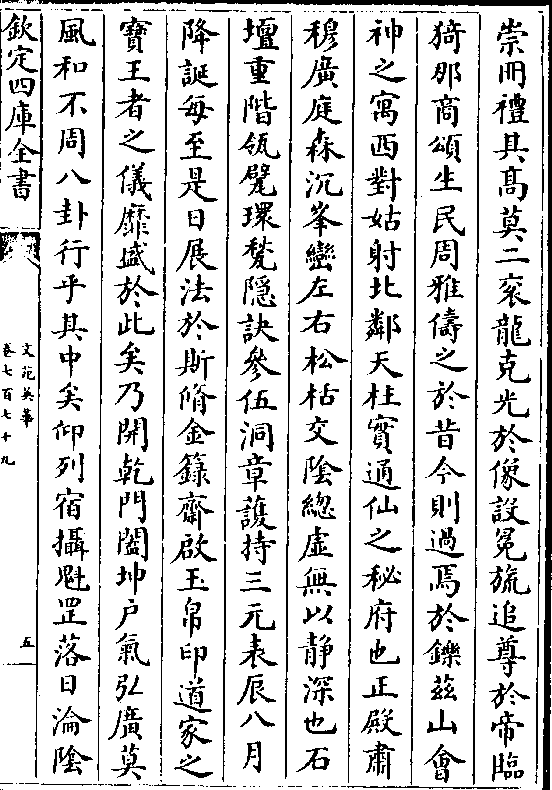 崇册禮其髙莫二衮龍克光於像設冕旒追尊於帝臨
猗那商頌生民周雅儔之於昔今則過焉於鑠兹山會
神之寓西對姑射北鄰天柱實通仙之秘府也正殿肅
穆廣庭森沉峯巒左右松枯交陰總虚無以静深也石
壇重階瓴甓環甃隠訣參伍洞章䕶持三元表辰八月
降誕每至是日展法於斯隋金籙齋啟玉帛印道家之
寳王者之儀靡盛於此矣乃開乾門闔坤户氣弘廣莫
風和不周八卦行乎其中矣仰列宿攝魁罡落日淪陰
欽定四庫全書
文苑英華
卷七百七十九
五